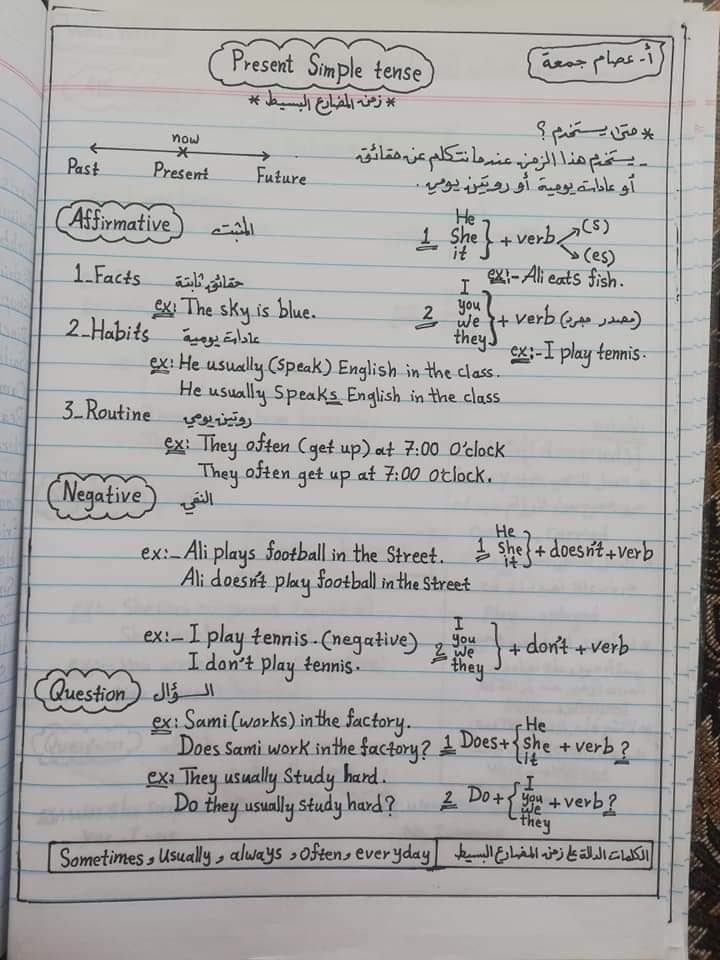 Present Simple tense
أ- عصام جمعة
* زمن المضارع البسيط *
* متى يستخدم ؟
- يستخدم هذا الزمن عندما نتكلم عن حقائق
أو عادات يومية أو روتين يومي.
now
Past Present Future
Affirmative المثبت
1 He She it } + verb (s) (es)
ex:- Ali eats fish.
1_Facts حقائق ثابتة
ex: The sky is blue.
2 I you we they } + verb (مصدر مجرد)
ex:- I play tennis.
2_Habits عادات يومية
ex: He usually (speak) English in the class.
He usually Speaks English in the class
3_Routine روتين يومي
ex: They often (get up) at 7:00 O'clock
They often get up at 7:00 O'clock.
Negative النفي
ex:- Ali plays football in the Street.
Ali doesn't play football in the Street
1 He She it } + doesn't + verb
ex:- I play tennis. (negative)
I don't play tennis.
2 I you we they } + don't + verb
Question السؤال
ex: Sami (works) in the factory.
Does Sami work in the factory?
1 Does + { He she it + verb ?
ex: They usually Study hard.
Do they usually study hard?
2 Do + { I you we they + verb ?
Sometimes, usually, always, often, everyday
الكلمات الدالة على زمن المضارع البسيط